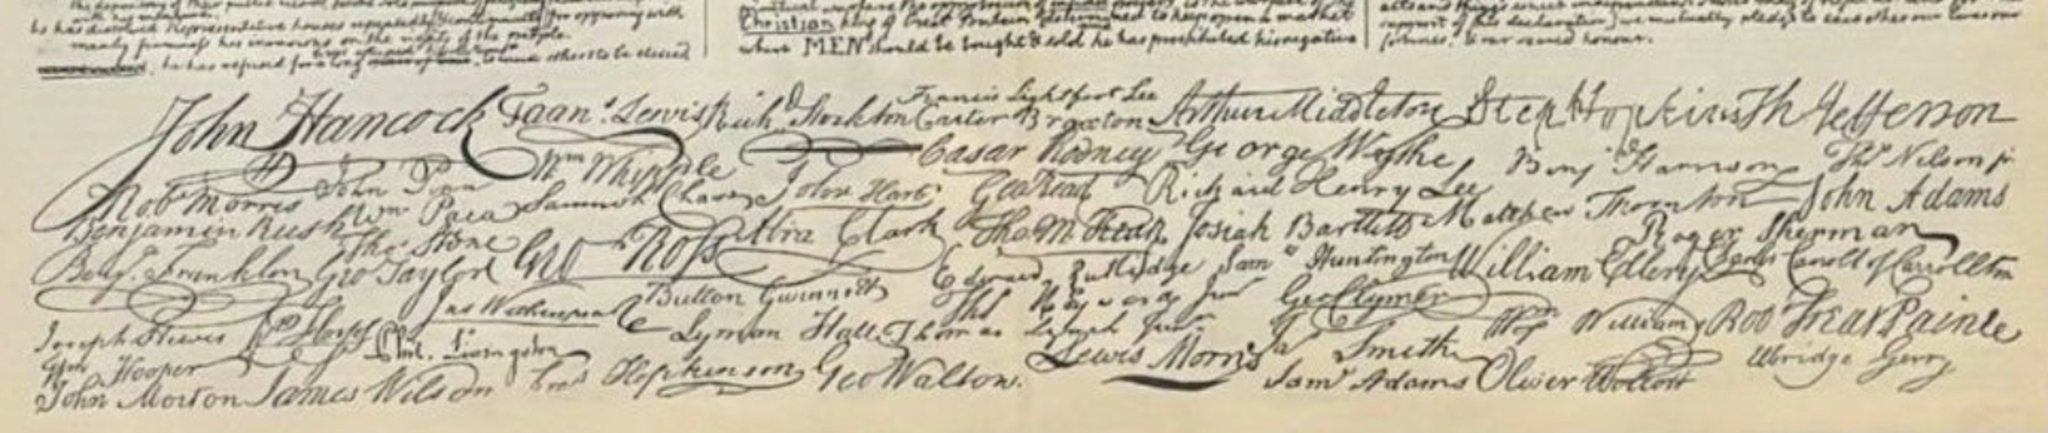 he has dissolved Representative houses repeatedly for opposing with
manly firmness his invasions on the rights of the people.
he has refused for a long to cause others to be elected
Christian king of Great Britain determined to keep open a market
where MEN should be bought & sold he has prostituted his negative
support of this declaration we mutually pledge to each other our lives our
fortunes, & our sacred honour.
John Hancock Fran.s Lewis Rich.d Stockton Francis Lightfoot Lee Carter Braxton Arthur Middleton Step Hopkins Th Jefferson
Wm Whipple Cæsar Rodney George Wythe Benj Harrison Tho.s Nelson jr
Robt Morris John Penn Samuel Chase John Hart Geo Read Richard Henry Lee John Adams
Benjamin Rush Wm Paca Abra Clark Tho M.Kean Josiah Bartlett Matthew Thornton Roger Sherman
Benj. Franklin Tho.s Stone Geo Taylor Geo Ross Edward Rutledge Sam.l Huntington William Ellery Charles Carroll of Carrollton
Button Gwinnett Geo Clymer
Joseph Hewes Lyman Hall Thomas Lynch Jun.r Wm Williams Rob Treat Paine
Wm Hooper Phil. Livingston Lewis Morris Js Smith Elbridge Gerry
John Morton James Wilson Fras Hopkinson Geo Walton. Saml Adams Oliver Wolcott